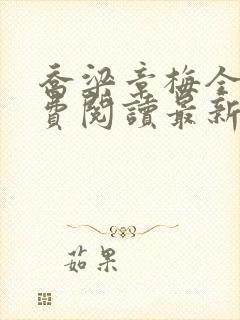 喬梁章梅全
費閱讀最新
茹果